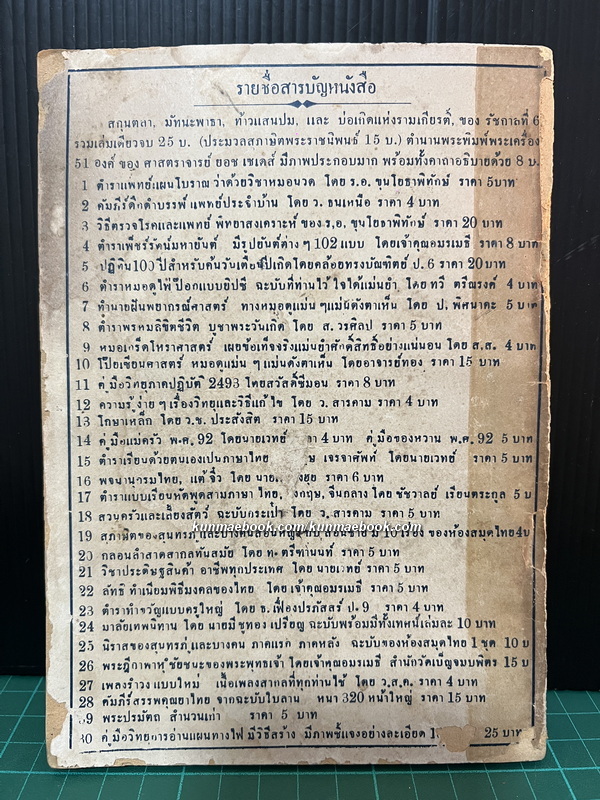 รายชื่อสารบัญหนังสือ
สกุนตลา, มัทนะพาธา, ท้าวแสนปม, และ บ่อเกิดแห่งรามเกียรติ์, ของ รัชกาลที่ 6
รวมเล่มเดียวจบ 25 บ. (ประมวลสุภาษิตพระราชนิพนธ์ 15 บ.) ตำนานพระพิมพ์พระเครื่อง
51 องค์ ของ ศาสตราจารย์ ยอช เซเดส์ มีภาพประกอบมาก พร้อมทั้งคาถาอธิบายด้วย 8 บ.
1 ตำราแพทย์แผนโบราณว่าด้วยวิชาหมอนวด โดย ร.อ. ขุนโยธาพิทักษ์ ราคา 5บาท
2 คัมภีร์ดึกดำบรรพ์ แพทย์ประจำบ้าน โดย ว. ธนเหนือ ราคา 4 บาท
3 วิธีตรวจโรคและแพทย์ พิทยาสงเคราะห์ ของ ร,อ. ขุนโยธาพิทักษ์ ราคา 20 บาท
4 ตำราเพ็ชร์รัตน์มหายันต์ มีรูปยันต์ต่าง ๆ 102 แบบ โดยเจ้าคุณอมรเมธี ราคา 8 บาท
5 ปฏิทิน100ปีสำหรับค้นวันเดือนปีเกิดโดยคล้อยทรงบัณฑิตย์ ป.6 ราคา 20บาท
6 ตำราหมอดูไพ่ป๊อกแบบยิปซี ฉะบับที่ท่านไว้ใจได้แม่นยำ โดย ทวี ตรีณรงค์ 4 บาท
7 ทำนายฝันพยากรณ์ศาสตร์ ทางหมอดูแม่น ๆแม่นดังตาเห็น โดย ป. พิศนาคะ 5 บาท
8 ตำราพรหมลิขิตชีวิต บูชาพระวันเกิด โดย ส. วรศิลป ราคา 5 บาท
9 หมอเกร็ดโหราศาสตร์ เผยข้อเท็จจริงแม่นยำศักดิ์สิทธิ์อย่างแน่นอน โดย ส.ส. 4 บาท
10 โป๊ยเซียนศาสตร์ หมอดูแม่น ๆ แม่นดังตาเห็น โดยอาจารย์ทอง ราคา 15 บาท
11 คู่มือวิทยุภาคปฏิบัติ 2493 โดยสวัสดิ์ชีมอน ราคา 8 บาท
12 ความรู้ง่าย ๆ เรื่องวิทยุและวิธีแก้ไข โดย ว. สารคาม ราคา 4 บาท
13 โกษาเหล็ก โดย ว.ช. ประสังสิต ราคา 15 บาท
14 คู่มือแม่ครัว พ.ศ. 92 โดยนายเวทย์ 4 บาท คู่มือของหวาน พ.ศ. 92 5 บาท
15 ตำราเรียนด้วยตนเองเป็นภาษาไทย เจรจาศัพท์ โดยนายเวทย์ ราคา 5 บาท
16 พจนานุกรมไทย, แต้จิ๋ว โดย ราคา 6 บาท
17 ตำราแบบเรียนหัดพูดสามภาษา ไทย, อังกฤษ, จีนกลาง โดย ชัชวาลย์ เรียนตระกูล 5 บ
18 สวนครัวและเลี้ยงสัตว์ ฉะบับกระเป๋า โดย ว. สารคาม 5 บาท
kunmaebook.com/kunmaebook.com
19 สุภาษิตของสุนทรภู่ มี 10 เรื่อง ของห้องสมุดไทย4บ
20 กลอนลำสวดสากลทันสมัย โดย ท. ตรีท่านนท์ ราคา 5 บาท
21 วิชาประดิษฐสินค้า อาชีพทุกประเทศ โดย นายเวทย์ ราคา 5 บาท
22 ลัทธิ ทำเนียมพิธีมงคลของไทย โดย เจ้าคุณอมรเมธี ราคา 5 บาท
23 ตำราทำขวัญแบบครูใหญ่ โดย ธ. เฟื่องปรภัสสร์ ป. 9 ราคา 4 บาท
24 มาลัยเทพนิทาน โดย นายมี ชูทอง เปรียญ ฉะบับพร้อมมีทั้งเทศน์เล่มละ 10 บาท
25 นิราสของสุนทรภู่ และบางคน ภาคแรก ภาคหลัง ฉะบับของห้องสมุดไทย 1 ชุด 10 บ
26 พระฎีกาพาหุํชัยชนะของพระพุทธเจ้า โดยเจ้าคุณอมรเมธี สำนักวัดเบ็ญจมบพิตร 15 บ
27 เพลงรำวง แบบใหม่ เนื้อเพลงสากลที่ทุกท่านใช้ โดย ว.ส.ค. ราคา 4 บาท
28 คัมภีร์สรรพคุณยาไทย จากฉะบับใบลาน หนา 320 หน้าใหญ่ ราคา 15 บาท
29 พระปรมัตถ สำนวนเก่า ราคา 5 บาท
30 คู่มือวิทยุการอ่านแผนทางไฟ มีวิธีสร้าง มีภาพชี้แจงอย่างละเอียด 25 บาท